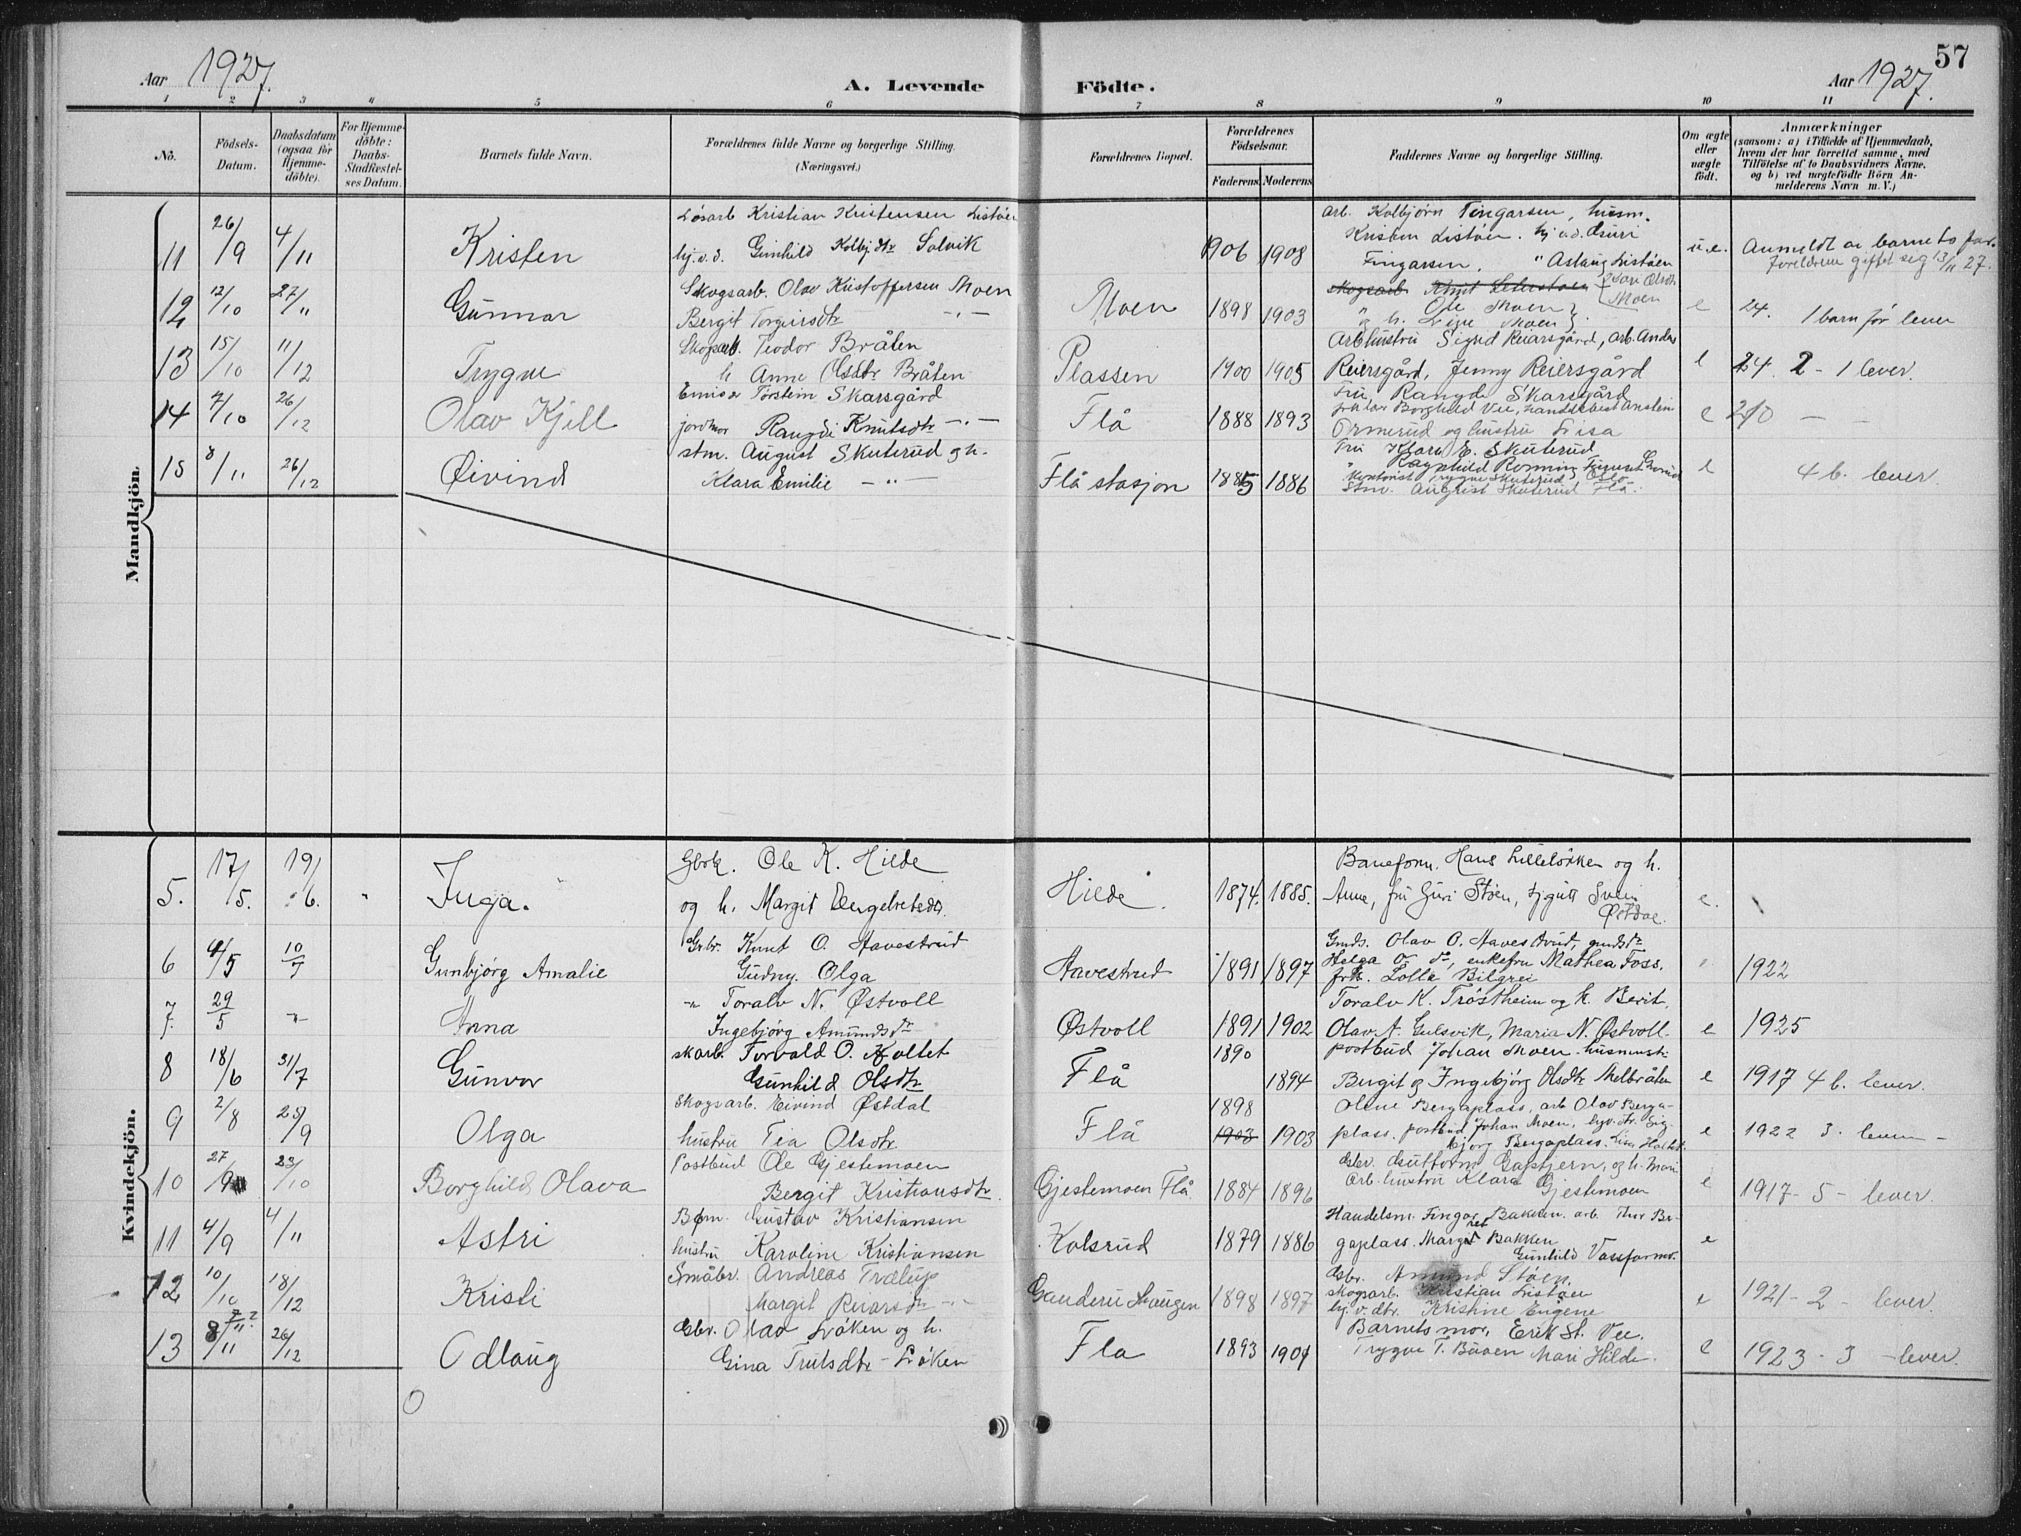 57
Aar 1927.
A. Levende Födte.
Aar 1927.
1 2 3 4 5 6 7 8 9 10 11
No.
Födsels-Datum.
Daabsdatum (ogsaa for Hjemme-döbte).
For Hjemme-döbte: Daabs-Stadfæstel-ses Datum.
Barnets fulde Navn.
Forældrenes fulde Navne og borgerlige Stilling. (Næringsvei.)
Forældrenes Bopæl.
Forældrenes Födselsaar.
Faderens. Moderens.
Faddernes Navne og borgerlige Stilling.
Om ægte eller uægte födt.
Anmærkninger (saasom: a) i Tilfælde af Hjemmedaab, hvem der har forrettet samme, med Tilföielse af to Daabsvidners Navne. og b) ved uægtefödte Börn An-melderens Navn m. V.)
Mandkjön.
11 26/9 4/11 Kristen
Løsarb Kristian Kristensen Listøen
hj.v.d. Gunhild Kolbj.dtr Solvik
1906 1908
arb. Kolbjørn Fingarsen, husm.
Kristen Listøen. hj.v.d. Guri
Fingarsen, " Aslaug Listøen
u.e. Anmeldt av barnets far.
Foreldrene giftet seg 13/11 27.
12 12/10 27/11 Gunnar
Skogsarb. Olav Kristoffersen Moen
Bergit Torgeirsdtr -"-
Moen 1898 1903
Ole Moen
Moen
e 24. 1 barn før lever
13 15/10 11/12 Trygve
Skogsarb. Teodor Bråten
h Anne Olsdtr Bråten
Plassen 1900 1905
Arb.hustru Sigrid Reiarsgård, arb. Anders
Reiersgård, Jenny Reiersgård
e 24. 2 - 1 lever.
14 7/10 26/12 Olav Kjell
Torstein Skarsgård
jordmor Rangdi Knutsdtr -"-
Flå 1888 1893
Fru Rangdi Skarsgård
Ormerud og hustru Lisa
e 20 -
15 8/11 26/12 Øivind
stm. August Skuterud og h.
Klara Emilie -"-
Flå stasjon 1885 1886
Fru Klara E. Skuterud
Kontorist Trygve Skuterud, Oslo
Stm. August Skuterud Flå.
e 4 b. lever.
Kvindekjön.
5. 17/5. 19/6. " Inga.
Gbrk. Ole K. Hilde
og h. Margit Engebretsdtr.
Hilde. 1874. 1885.
Baneform. Hans Lilleløkken og h.
Anne, fru Guri Støen, tj.gutt Svein
Østdal.
e.
6 4/5 10/7 Gunbjørg Amalie
Grbr. Knut O. Aavestrud
Gudny Olga
Aavestrud 1891 1897
Gmds. Olav O. Aavestrud, gmdsdtr
Helga O do, enkefru Mathea Foss,
frk. Lolla Bilgrei
" 1922
7. 29/5 " Anna
" Toralv N. Østvoll
Ingebjørg Amundsdtr
Østvoll 1891 1902
Toralv K. Trøstheim og h. Berit,
Olav A. Gulsvik, Maria N. Østvoll.
e 1925
8 18/6 31/7 Gunvor
skarb. Torvald O. Holtet
Gunhild Olsdtr
Flå 1890 1894
postbud Johan Moen husmusti
Bergit og Ingebjørg Olsdtr Melbråten
e 1917 4 b. lever.
9 2/8 25/9 Olga
Skogsarb. Eivind Østdal
hustru Tea Olsdtr
Flå 1898 1903 1903
Oline Bergaplass, arb Olav Berga-
plass. postbud Johan Moen,
Bergaplass.
e 1922 3. lever -
10 27/9 23/10 Borghild Olava
Postbud Ole Gjestemoen
Bergit Kristiansdtr.
Gjestemoen Flå. 1884 1896
Gbr. Guttorm Gaptjern, og h. Mari
Arb.hustru Klara Gjestemoen
e 1917 - 5 - lever.
11 4/9 4/11 Astri
Bform. Gustav Kristiansen
hustru Karoline Kristiansen
Kolsrud 1879 1886
Handelsm. Fingar Bakken. arb. Thor Ber-
gaplass. Margit Bakken
Gunhild Vassfarmo.
e
12 10/10 18/12 Kristi
Småbr. Andreas Trælup
Margit Reiarsdtr -"-
Ganderu Haugen 1898 1897
Gbr. Amund Støen.
skogsarb. Kristian Listøen
hj.v.dtr. Kristine Eugene
e 1921 - 2 - lever.
13 8/11 26/12 Odlaug
Gbr. Olav Løken og h.
Gina Trulsdtr - Løken
Flå 1893 1901
Barnets mor, Erik St. Vee.
Trygve T. Buaen Mari Hilde.
e 1923 - 3 - lever.